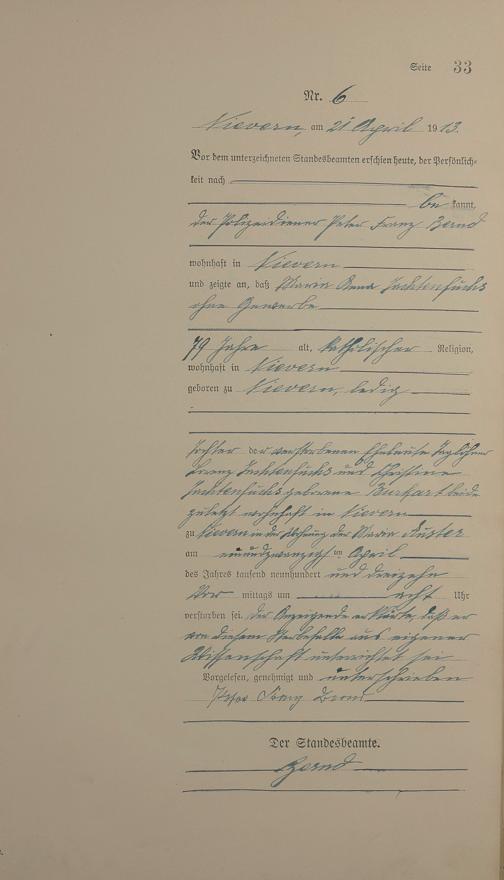 Seite 33
Nr. 6
Nievern, am 21 April 1913.
Vor dem unterzeichneten Standesbeamten erschien heute, der Persönlich-
keit nach
be kannt,
der Polizeidiener Peter Franz Bernd
wohnhaft in Nievern
und zeigte an, daß Maria Anna
ohne Gewerbe
79 Jahre alt, katholischer Religion,
wohnhaft in Nievern
geboren zu Nievern, ledig
Tochter der verstorbenen Eheleute Taglöhner
Franz und Christine
geborene Burkart beide
zuletzt wohnhaft in Nievern
zu Nievern in der Wohnung der Maria Kuster
am einundzwanzigsten April
des Jahres tausend neunhundert und dreizehn
Vor mittags um acht Uhr
verstorben sei. Der Anzeigende erklärte, daß er
von diesem Sterbefalle aus eigener
Wissenschaft unterrichtet sei
Vorgelesen, genehmigt und unterschrieben
Peter Franz Bernd
Der Standesbeamte.
Bernd